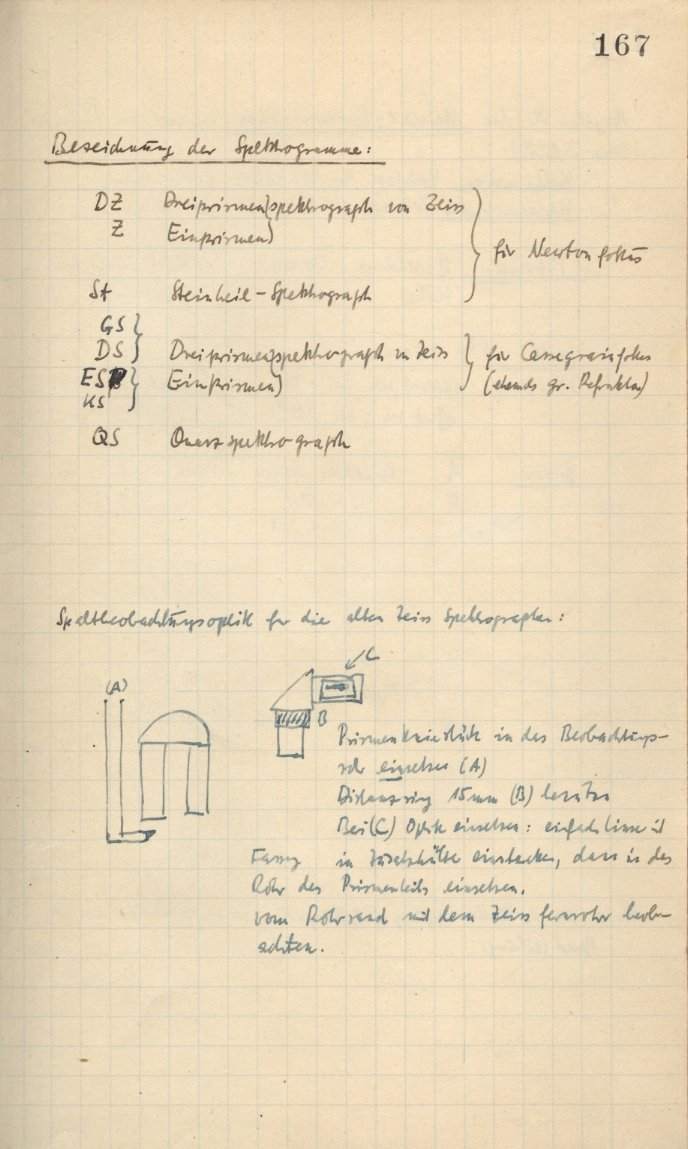 167
Bezeichnung der Spektrogramme:
DZ Dreiprismen) spektrograph von Zeiss
Z Einprismen)
} für Newtonfokus
St Steinheil-Spektrograph
GS }
DS Dreiprismen) spektrograph von Zeiss } für Cassegrainfokus
ES } Einprismen) gr. Refraktor)
KS
QS Quarzspektrograph
Spaltbeobachtungsoptik für die alten Zeiss Spektrographen:
(A)
C
B
Prismenkniestück in das Beobachtungs-
rohr einsetzen (A)
Distanzring 15mm (B)
Bei (C) Optik einsetzen: einfach Linse
Fassung in einstecken, dann in das
Rohr des Prismenteils einsetzen.
vom Rohrrand mit dem Zeiss fernrohr beob-
achten.